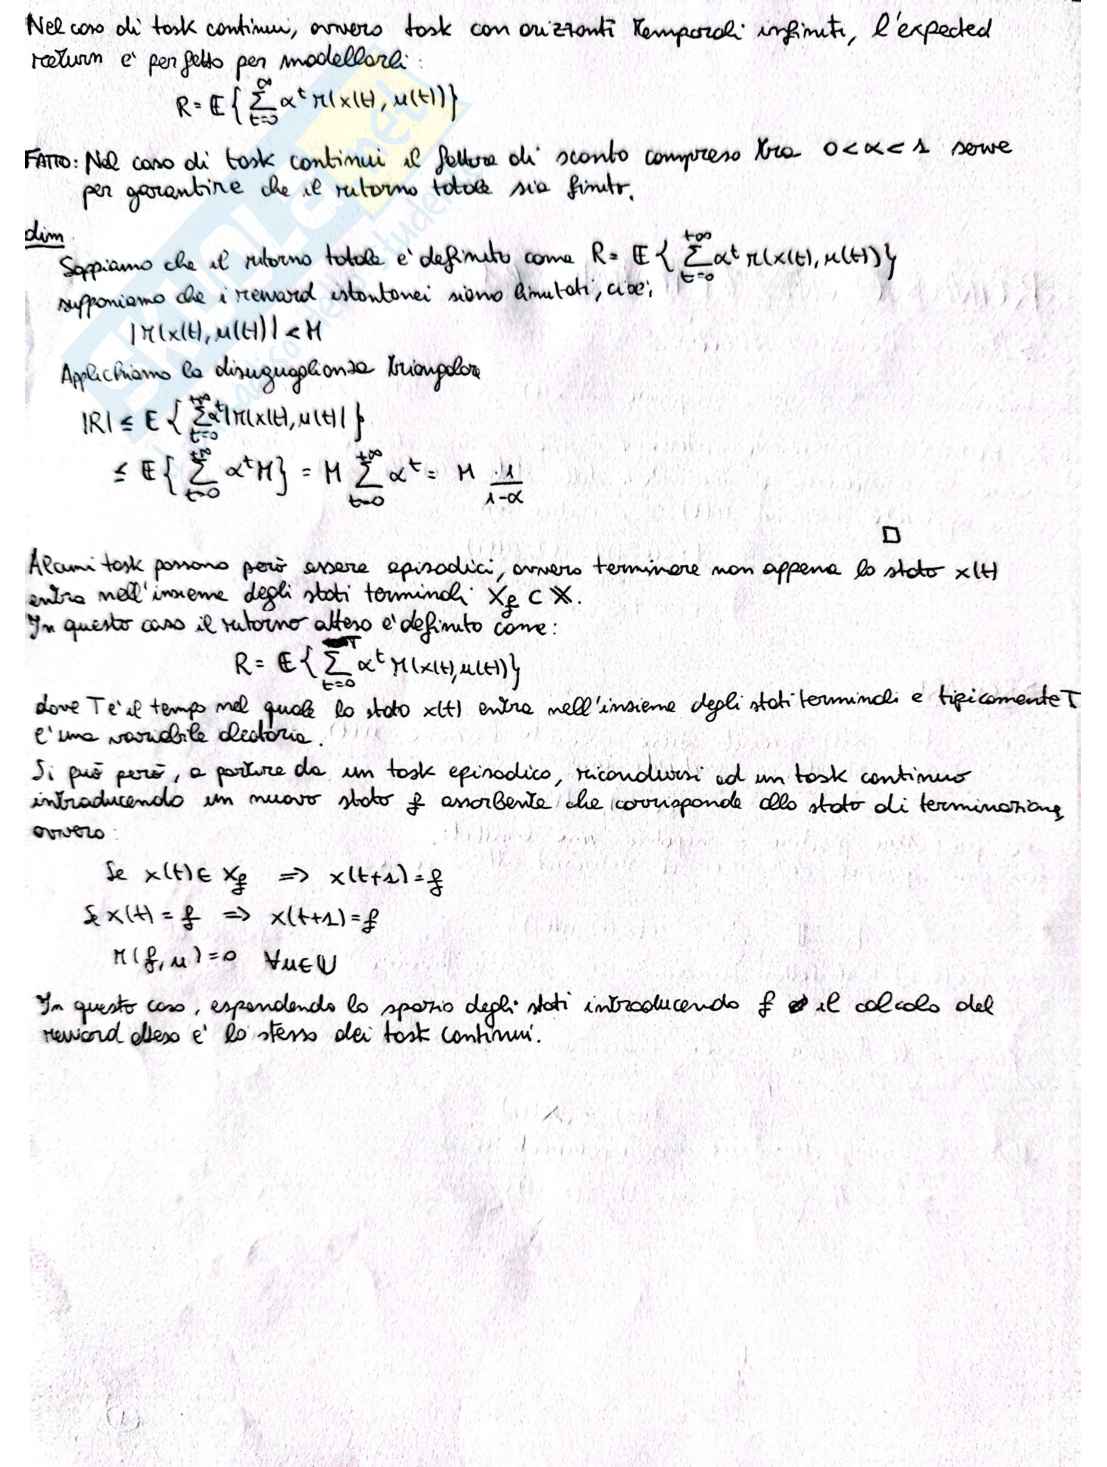 Nel caso di task continui, ovvero task con orizzonti temporali infiniti, l'expected
return e' perfetto per modellarli:
R = E { ∑_{t=0}^{∞} α^t r(x(t), u(t)) }
FATTO: Nel caso di task continui il fattore di sconto compreso tra 0 < α < 1 serve
per garantire che il ritorno totale sia finito.
dim
Sappiamo che il ritorno totale e' definito come R = E { ∑_{t=0}^{+∞} α^t r(x(t), u(t)) }
supponiamo che i reward istantanei siano limitati, cioe':
|r(x(t), u(t))| < M
Applichiamo la disuguaglianza triangolare
|R| ≤ E { ∑_{t=0}^{+∞} α^t |r(x(t), u(t)| }
≤ E { ∑_{t=0}^{+∞} α^t M } = M ∑_{t=0}^{+∞} α^t = M 1/(1-α)
□
Alcuni task possono però essere episodici, ovvero terminare non appena lo stato x(t)
entra nell'insieme degli stati terminali X_f ⊂ X.
In questo caso il ritorno atteso e' definito come:
R = E { ∑_{t=0}^{T} α^t r(x(t), u(t)) }
dove T e' il tempo nel quale lo stato x(t) entra nell'insieme degli stati terminali e tipicamente T
e' una variabile aleatoria.
Si può però, a partire da un task episodico, ricondursi ad un task continuo
introducendo un nuovo stato f assorbente che corrisponde allo stato di terminazione,
ovvero:
Se x(t) ∈ X_f ⇒ x(t+1) = f
Se x(t) = f ⇒ x(t+1) = f
r(f, u) = 0 ∀u ∈ U
In questo caso, espandendo lo spazio degli stati introducendo f il calcolo del
reward atteso e' lo stesso dei task continui.